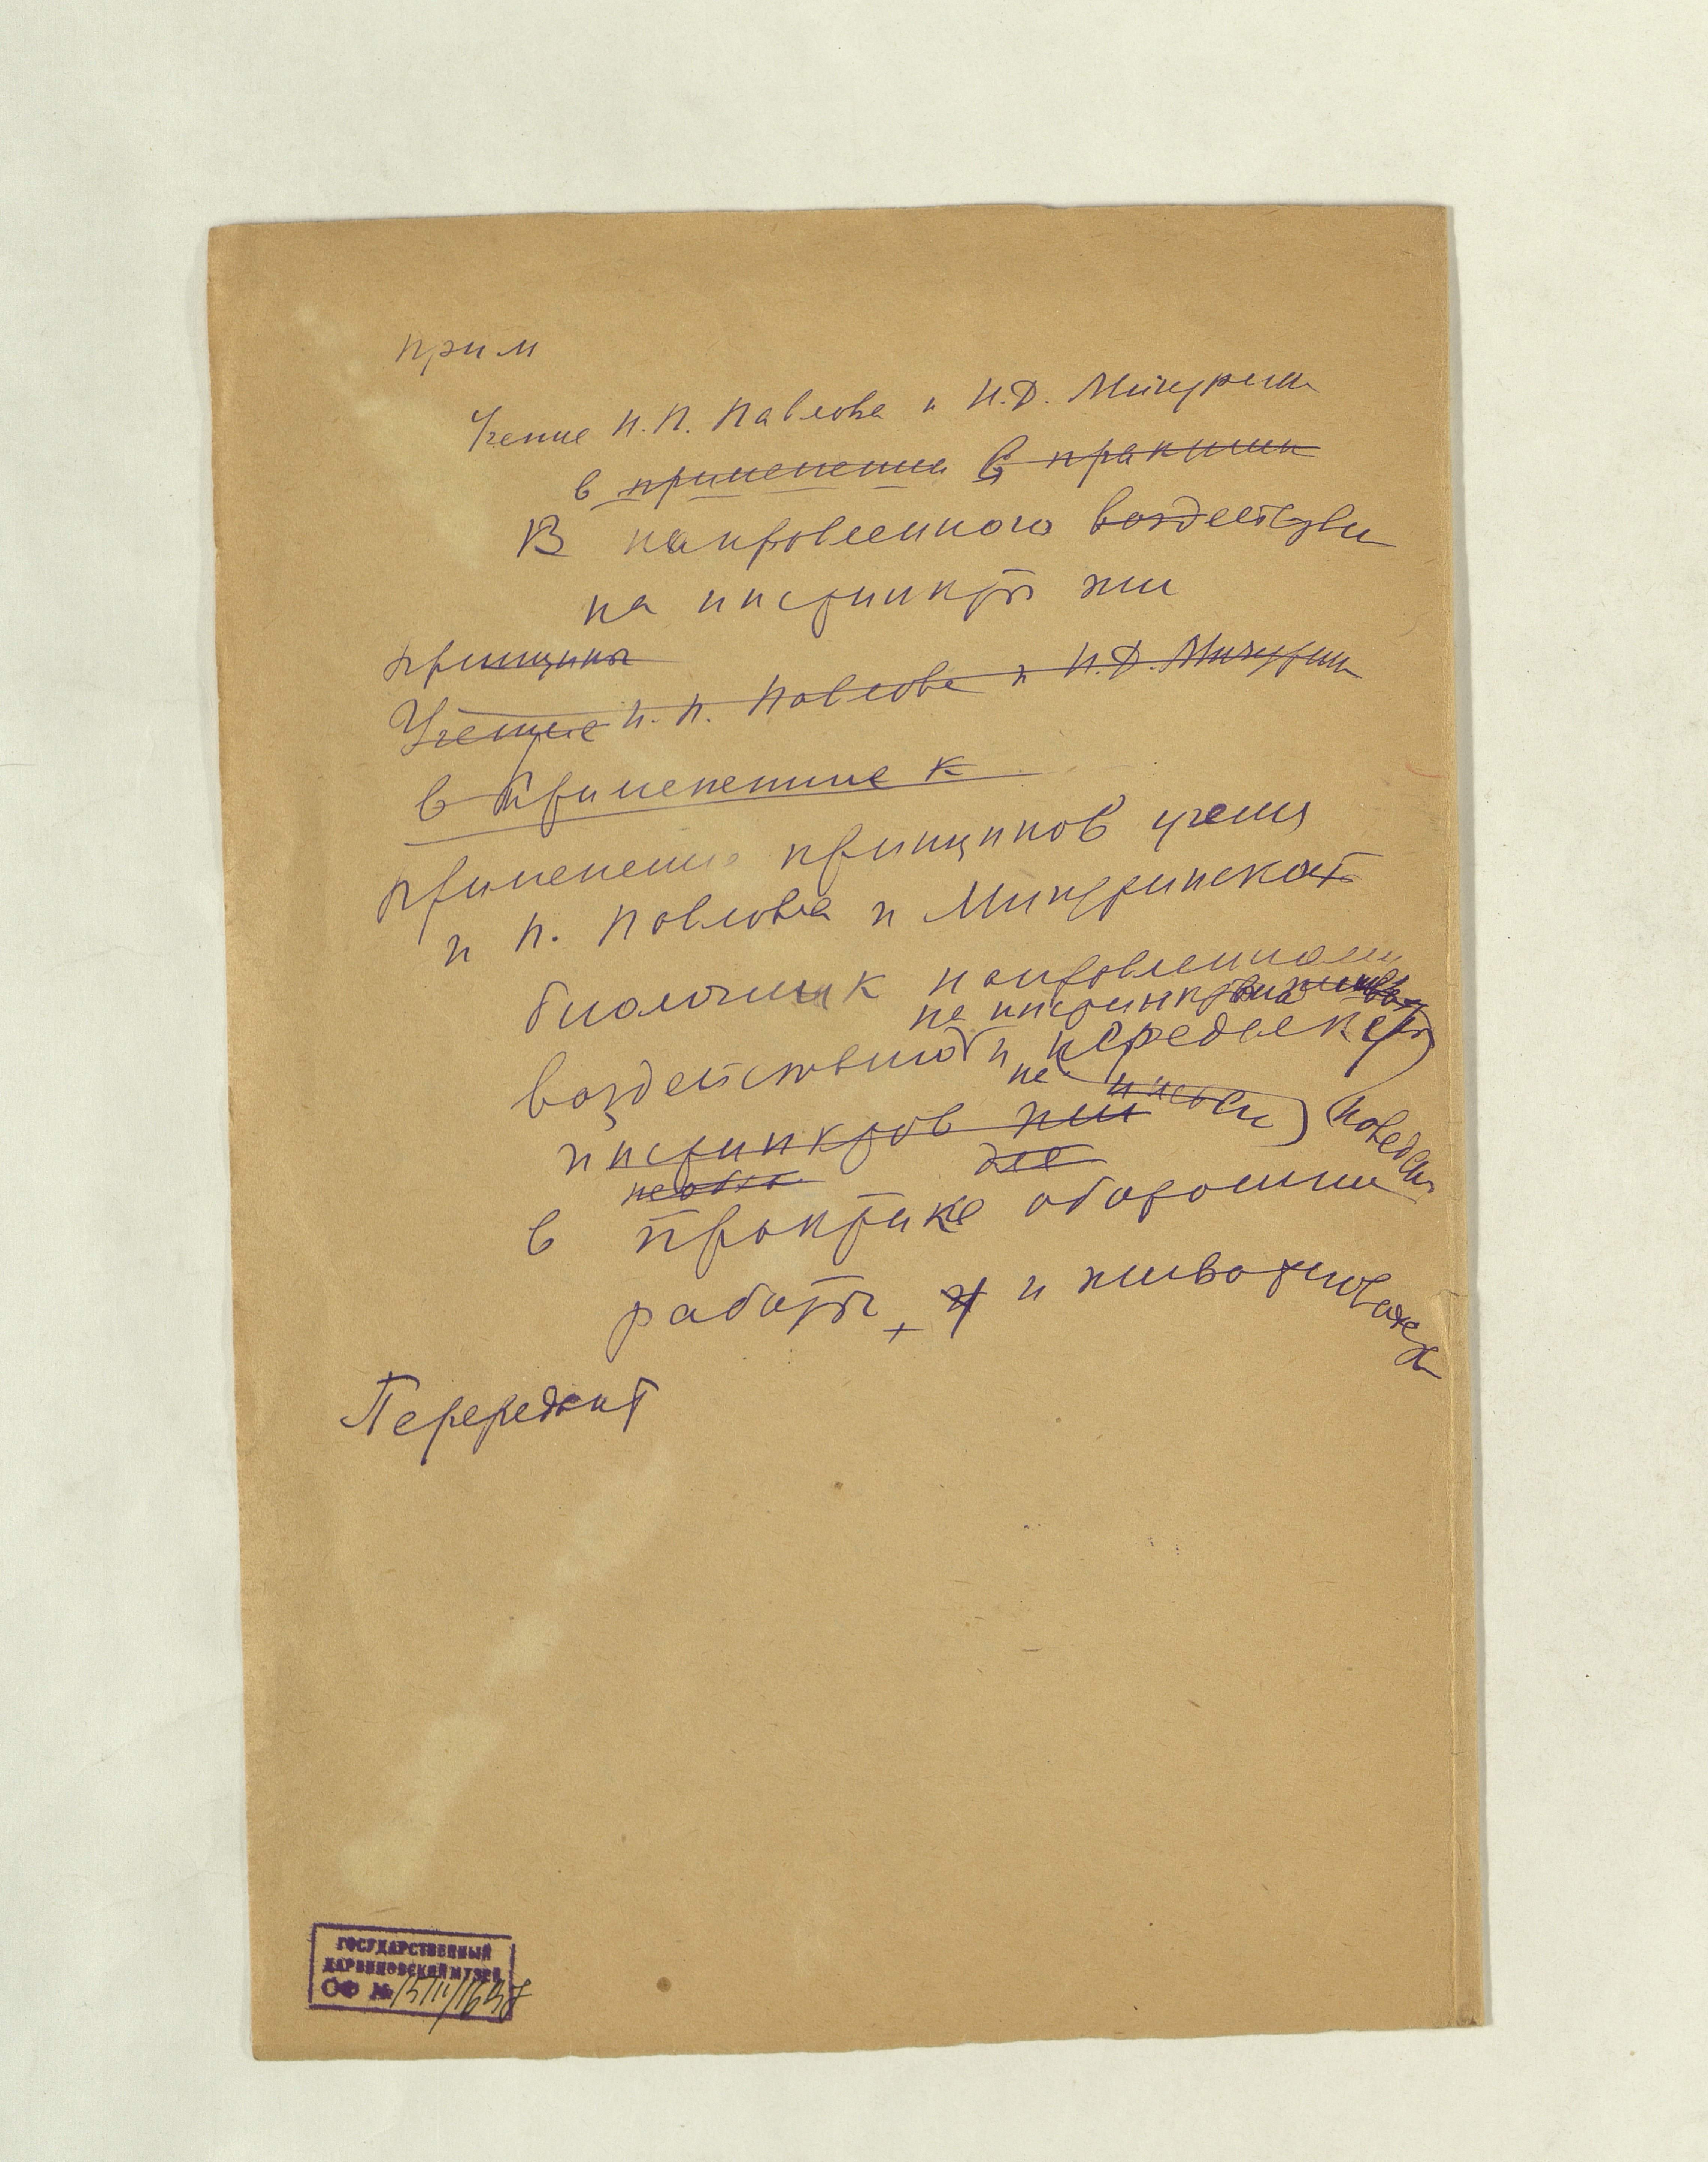 прим
Учение И.П. Павлова и И.В. Мичурина
в применении в практики
В направленного воздействия
на инстинкты жи
принципы
Учение И. П. Павлова и И.В. Мичурин
в применение к
Применение принципов учения
И П. Павлова и Мичуринской
биологии к направленному
на инстинкты
воздействию и переделке
на
инстинктов жи (поведени
для
в практике
работы, и животновод
Передект
ГОСУДАРСТВЕННЫЙ
ДАРВИНОВСКИЙ МУЗЕЙ
ОФ №